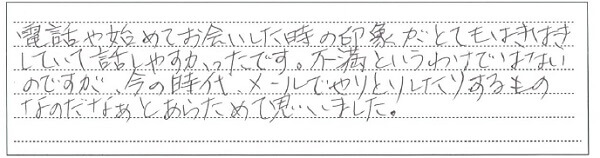 電話や始めてお会いした時の印象がとてもはきはき
していて話しやすかったです。不満というわけではない
のですが、今の時代、メールでやりとりしたりするもの
なのだなぁとあらためて思いいました。